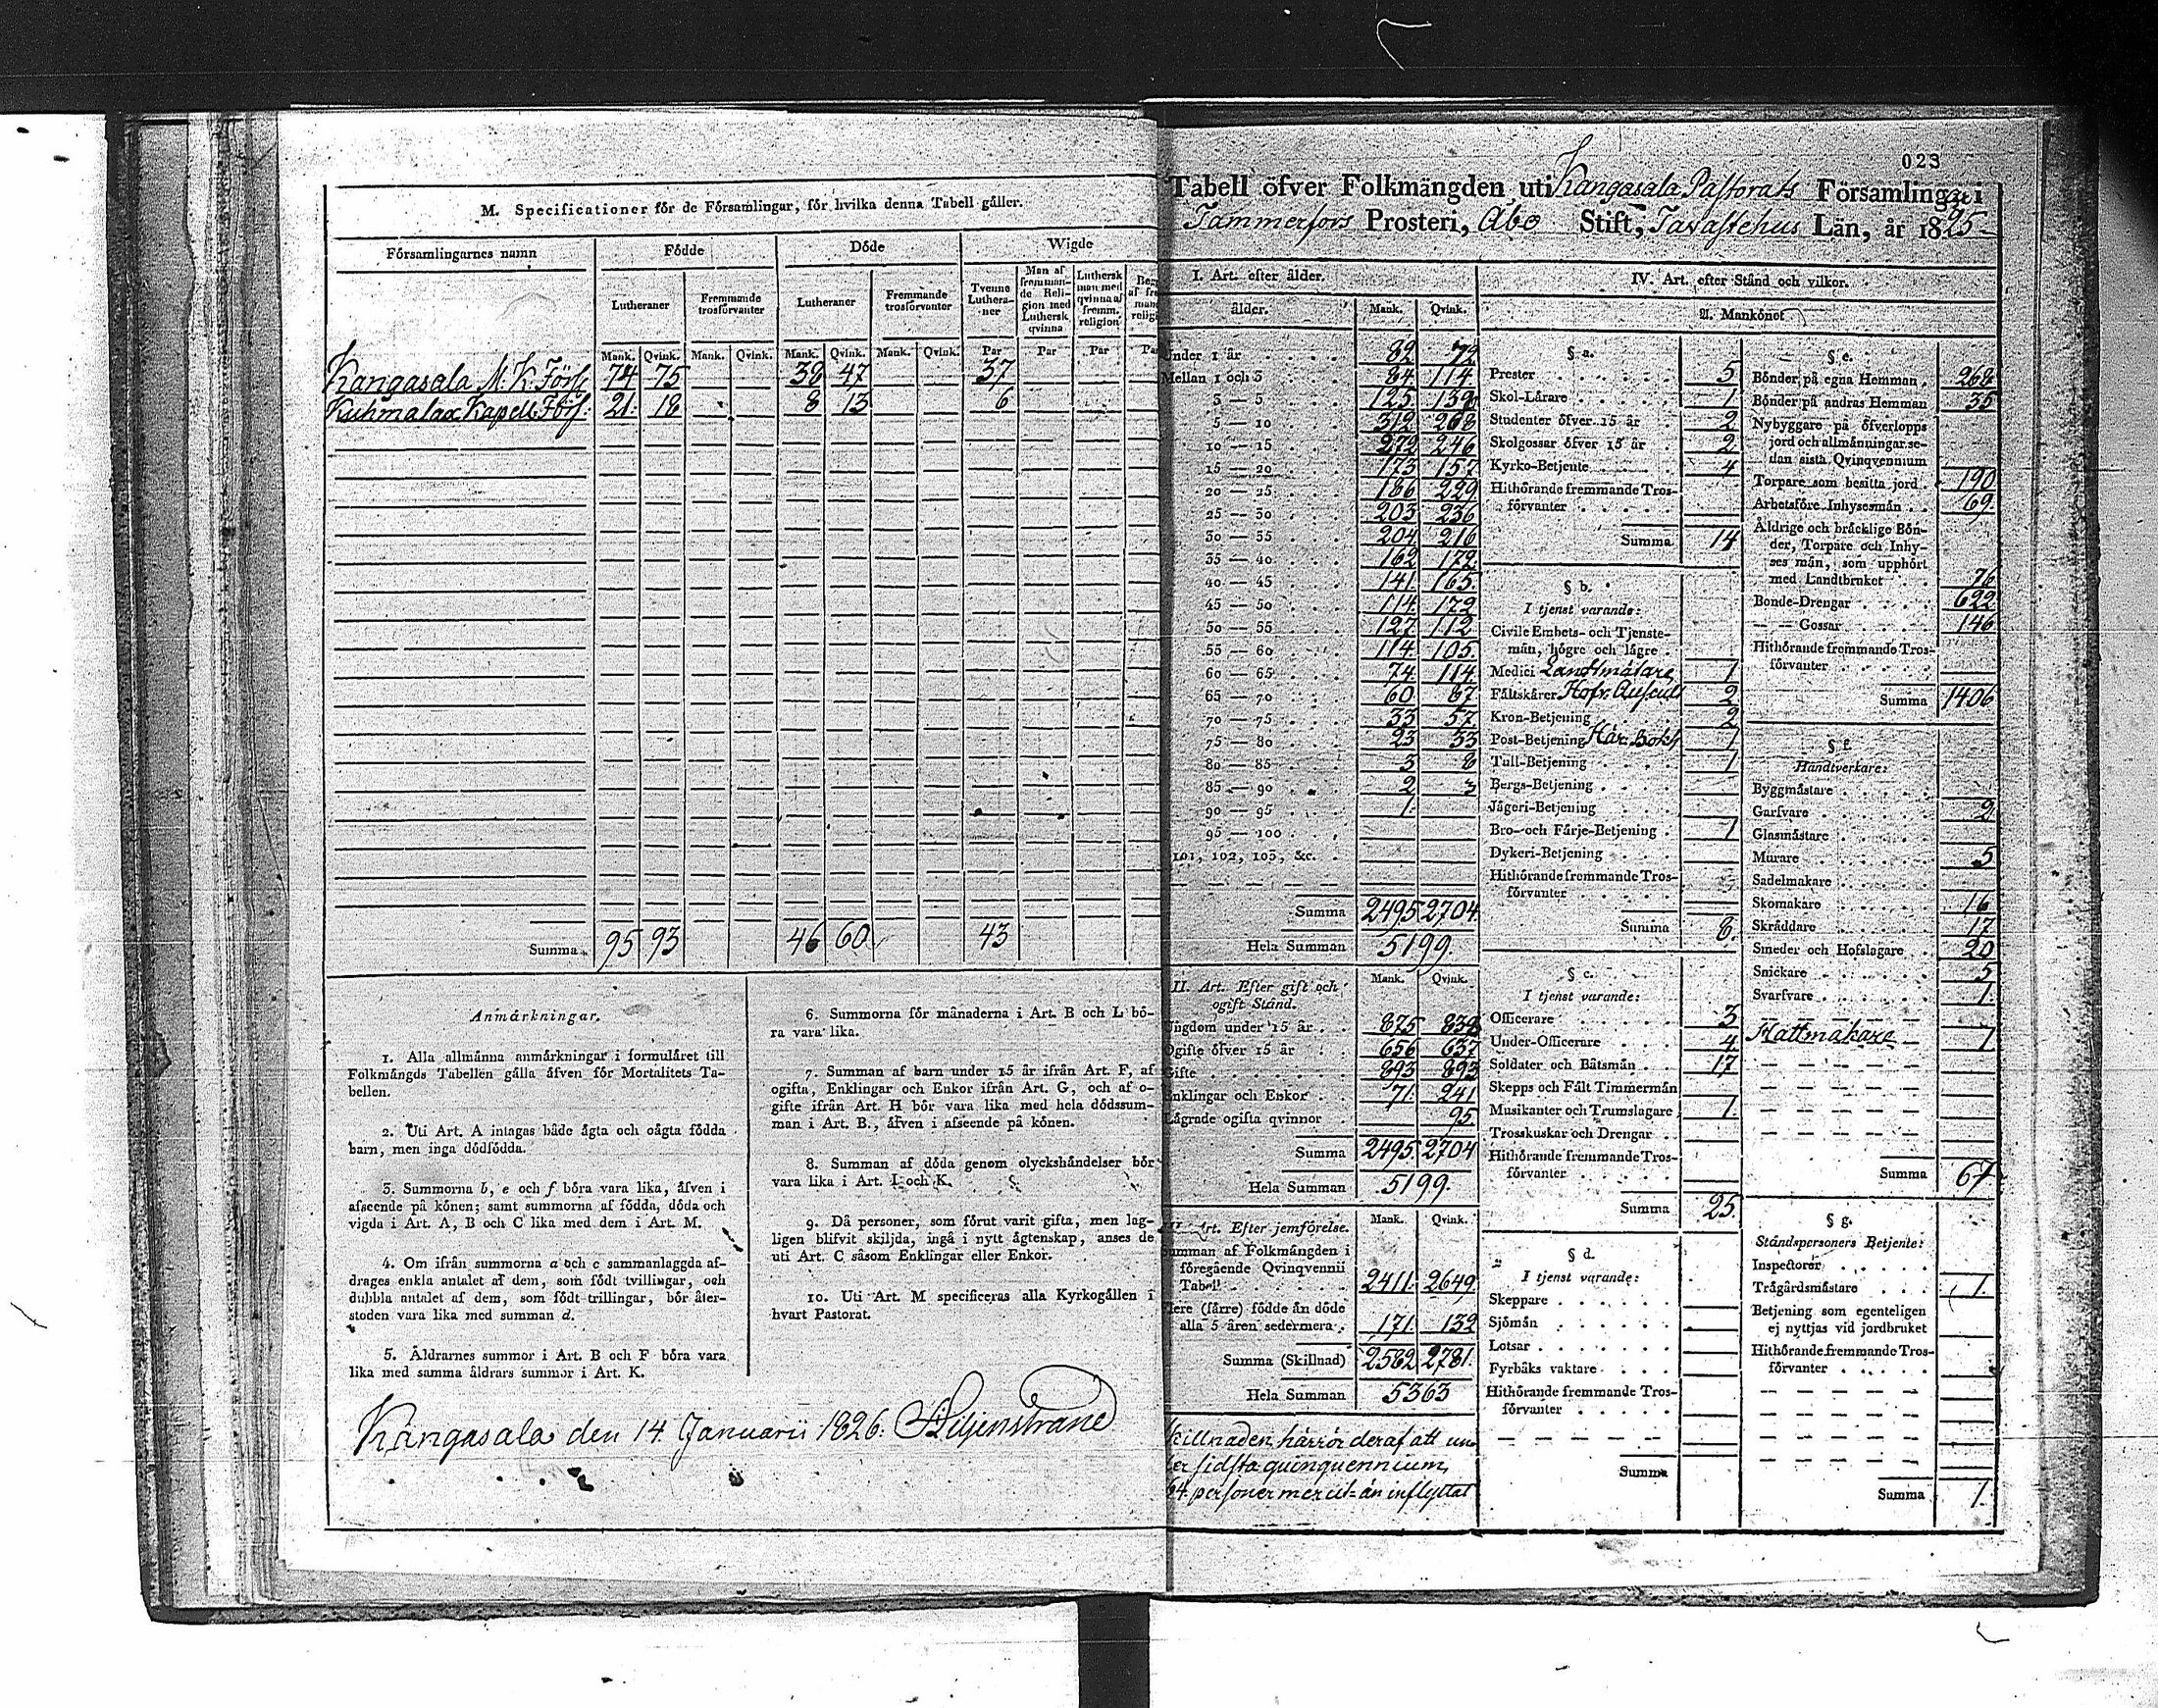 M. Specificationer för de Församlingar, för hvilka denna Tabell gäller.
Församlingarnes namn
Födde
Döde
Wigde
Lutheraner
Fremmande trosförvanter
Lutheraner
Fremmande trosförvanter
Tvenne Lutheraner
Man af fremmande Religion med Luthersk qvinna
Luthersk man med qvinna af fremm. religion
Mank. Qvink. Mank. Qvink. Mank. Qvink. Mank. Qvink. Par Par Par
Kangasala M. K. Förs. 74 75 38 47 37
Kuhmalax Kapell Förs. 21 18 8 13 6
Summa 95 93 46 60 43
Anmärkningar.
1. Alla allmänna anmärkningar i formuläret till
Folkmängds Tabellen gälla äfven för Mortalitets Ta-
bellen.
2. Uti Art. A intagas både ägta och oägta födda
barn, men inga dödfödda.
3. Summorna b, e och f böra vara lika, äfven i
afseende på könen; samt summorna af födda, döda och
vigda i Art. A, B och C lika med dem i Art. M.
4. Om ifrån summorna a och c sammanlaggda af-
drages enkla antalet af dem, som födt tvillingar, och
dubbla antalet af dem, som födt trillingar, bör åter-
stoden vara lika med summan d.
5. Åldrarnes summor i Art. B och F böra vara
lika med samma åldrars summor i Art. K.
6. Summorna för månaderna i Art. B och L bö-
ra vara lika.
7. Summan af barn under 15 år ifrån Art. F, af
ogifta, Enklingar och Enkor ifrån Art. G, och af o-
gifte ifrån Art. H bör vara lika med hela dödssum-
man i Art. B., äfven i afseende på könen.
8. Summan af döda genom olyckshändelser bör
vara lika i Art. I och K.
9. Då personer, som förut varit gifta, men lag-
ligen blifvit skiljda, ingå i nytt ägtenskap, anses de
uti Art. C såsom Enklingar eller Enkor.
10. Uti Art. M specificeras alla Kyrkogällen i
hvart Pastorat.
Kangasala den 14 Januarii 1826. Liljenstrand
023
Tabell öfver Folkmängden uti Kangasala Pastorats Församlingar i
Tammerfors Prosteri, Åbo Stift, Tavastehus Län, år 1825
I. Art. efter ålder.
ålder. Mank. Qvink.
Under 1 år 82 72
Mellan 1 och 3 84 114
3 — 5 125 139
5 — 10 312 268
10 — 15 272 246
15 — 20 173 157
20 — 25 186 229
25 — 30 203 236
30 — 35 204 216
35 — 40 162 172
40 — 45 141 165
45 — 50 114 172
50 — 55 127 112
55 — 60 114 105
60 — 65 74 114
65 — 70 60 87
70 — 75 33 57
75 — 80 23 33
80 — 85 3 8
85 — 90 2 3
90 — 95 1
95 — 100
101, 102, 103, &c.
Summa 2495 2704
Hela Summan 5199.
II. Art. Efter gift och
ogift Stånd. Mank. Qvink.
Ungdom under 15 år 875 838
Ogifte öfver 15 år 656 637
Gifte 893 893
Enklingar och Enkor 71 241
Lägrade ogifta qvinnor 95
Summa 2495 2704
Hela Summan 5199.
Art. Efter jemförelse. Mank. Qvink.
Summan af Folkmängden i
föregående Qvinqvennii
Tabell 2411 2649
Flere (färre) födde än döde
alla 5 åren sedermera 171 132
Summa (Skillnad) 2582 2781
Hela Summan 5363
Skillnaden härrör deraf att un-
der sidsta quinquennium
64 personer mer ut- än inflyttat
IV. Art. efter Stånd och vilkor.
A. Mankönet
§ a.
Prester 5
Skol-Lärare 1
Studenter öfver 15 år 2
Skolgossar öfver 15 år 2
Kyrko-Betjente 4
Hithörande fremmande Tros-
förvanter
Summa 14
§ b.
I tjenst varande:
Civile Embets- och Tjenste-
män, högre och lägre
Medici Landtmätare 1
Fältskärer Hofr. Auscult 2
Kron-Betjening 2
Post-Betjening Här. Bokh 1
Tull-Betjening 1
Bergs-Betjening
Jägeri-Betjening
Bro- och Färje-Betjening 1
Dykeri-Betjening
Hithörande fremmande Tros-
förvanter
Summa 8.
§ c.
I tjenst varande:
Officerare 3
Under-Officerare 4
Soldater och Båtsmän 17
Skepps och Fält Timmermän
Musikanter och Trumslagare 1.
Trosskuskar och Drengar
Hithörande fremmande Tros-
förvanter
Summa 25.
§ d.
I tjenst varande:
Skeppare
Sjömän
Lotsar
Fyrbåks vaktare
Hithörande fremmande Tros-
förvanter
Summa
§ e.
Bönder på egna Hemman 268
Bönder på andras Hemman 35
Nybyggare på öfverlopps
jord och allmänningar se-
dan sista Qvinqvennium
Torpare som besitta jord 190
Arbetsföre Inhysesmän 69.
Åldrige och bräcklige Bön-
der, Torpare och Inhy-
ses män, som upphört
med Landtbruket 76
Bonde-Drengar 622
— — Gossar 146
Hithörande fremmande Tros-
förvanter
Summa 1406
§ f.
Handtverkare:
Byggmästare
Garfvare 2
Glasmästare
Murare 5
Sadelmakare
Skomakare 16
Skräddare 17
Smeder och Hofslagare 20
Snickare 5
Svarfvare 1.
Hattmakare 1
Summa 67
§ g.
Ståndspersoners Betjente:
Inspectorer
Trägårdsmästare 1.
Betjening som egenteligen
ej nyttjas vid jordbruket
Hithörande fremmande Tros-
förvanter
Summa 1.